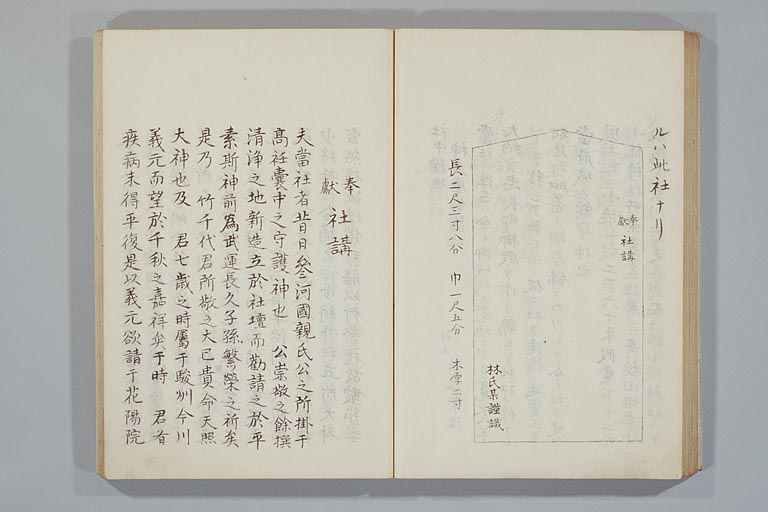 ルハ此社ナリ
奉献 社講
長二尺三寸八分 巾一尺五分 木厚二寸
林氏某謹識
奉献 社講
夫當社者昔日参河國親氏公之所掛于
髙祖嚢中之守護神也 公崇敬之餘撰
清浄之地新造立於社壇而勸請之於平
素斯神前為武運長久子孫繁榮之祈矣
是乃 竹千代君所敬之大已貴命天照
大神也及 君七歳之時屬于駿州今川
義元而望於千秋之嘉祥矣于時 君有
疾病未得平復是以義元欲請于花陽院